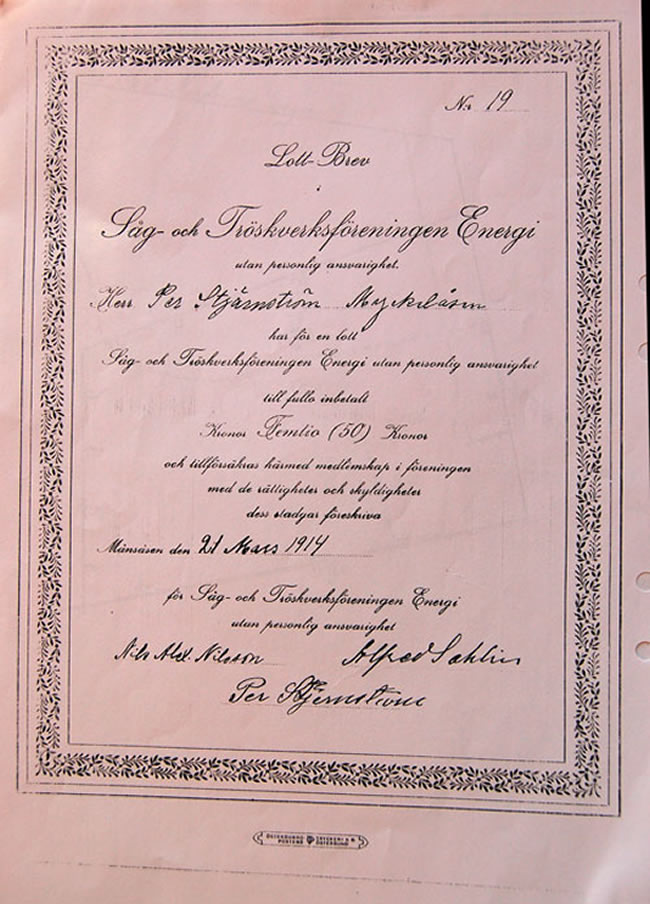 Nr 19
Lott-Brev
i
Såg- och Tröskverksföreningen Energi
utan personlig ansvarighet.
Herr Per Stjärnström Myckelåsen
har för en lott
Såg- och Tröskverksföreningen Energi utan personlig ansvarighet
till fullo inbetalt
Kronor Femtio (50) Kronor
och tillförsäkras härmed medlemskap i föreningen
med de rättigheter och skyldigheter
dess stadgar föreskriva
Månsåsen den 21 Mars 1914
för Såg- och Tröskverksföreningen Energi
utan personlig ansvarighet
Nils Alex. Nilsson Alfred Sahlin
Per Stjernström